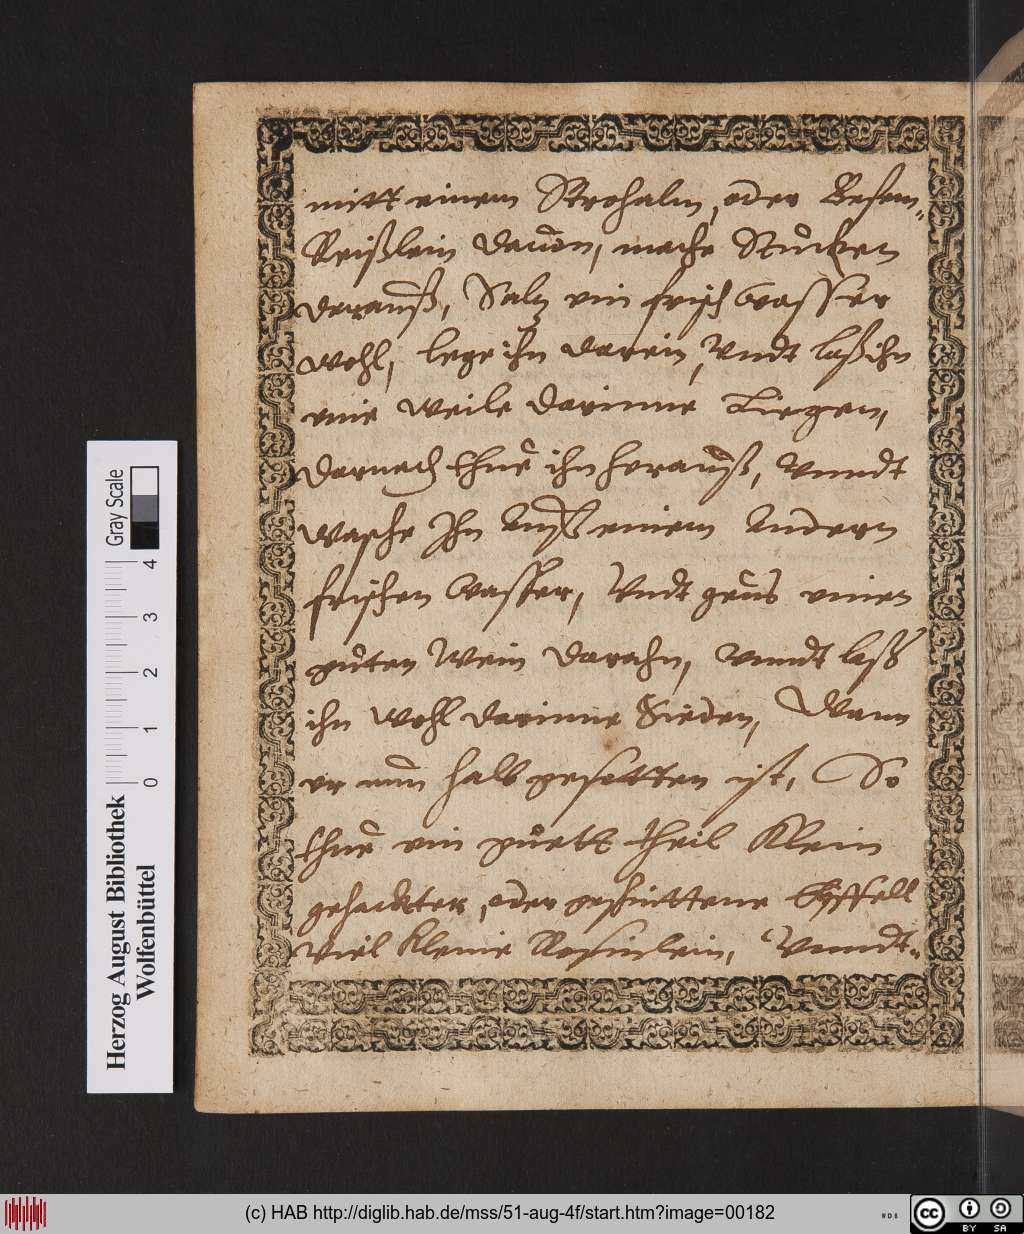 mitt einem Strohalm, oder Besem„
Reißlein dauon, mache Stücken
daraüß, Saltz ein frisch wasser
wohl, lege ihn darein, Vndt laß ihn
eine Weile darinne Liegen,
darnach thue ihn heraüß, Vnndt
wasche Ihn auß einem andern
frischen wasser, Vndt geüs einen
güten Wein darahn, Vnndt laß
ihn wohl darinne Sieden, Wann
er nun halb gesotten ist, So
thue ein guett theil Klein
gehackter, oder geschnittene Epffell
Viel kleine Rosinlein, Vnndt„
Gray Scale
0 1 2 3 4
Herzog August Bibliothek
Wolfenbüttel
(c) HAB http://diglib.hab.de/mss/51-aug-4f/start.htm?image=00182
WDB
cc BY SA